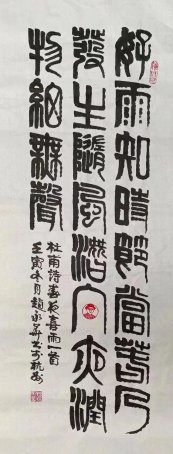 好雨知時節當春乃
發生隨風潛入夜潤
物細無聲
杜甫詩春夜喜雨一首
壬寅冬月趙永